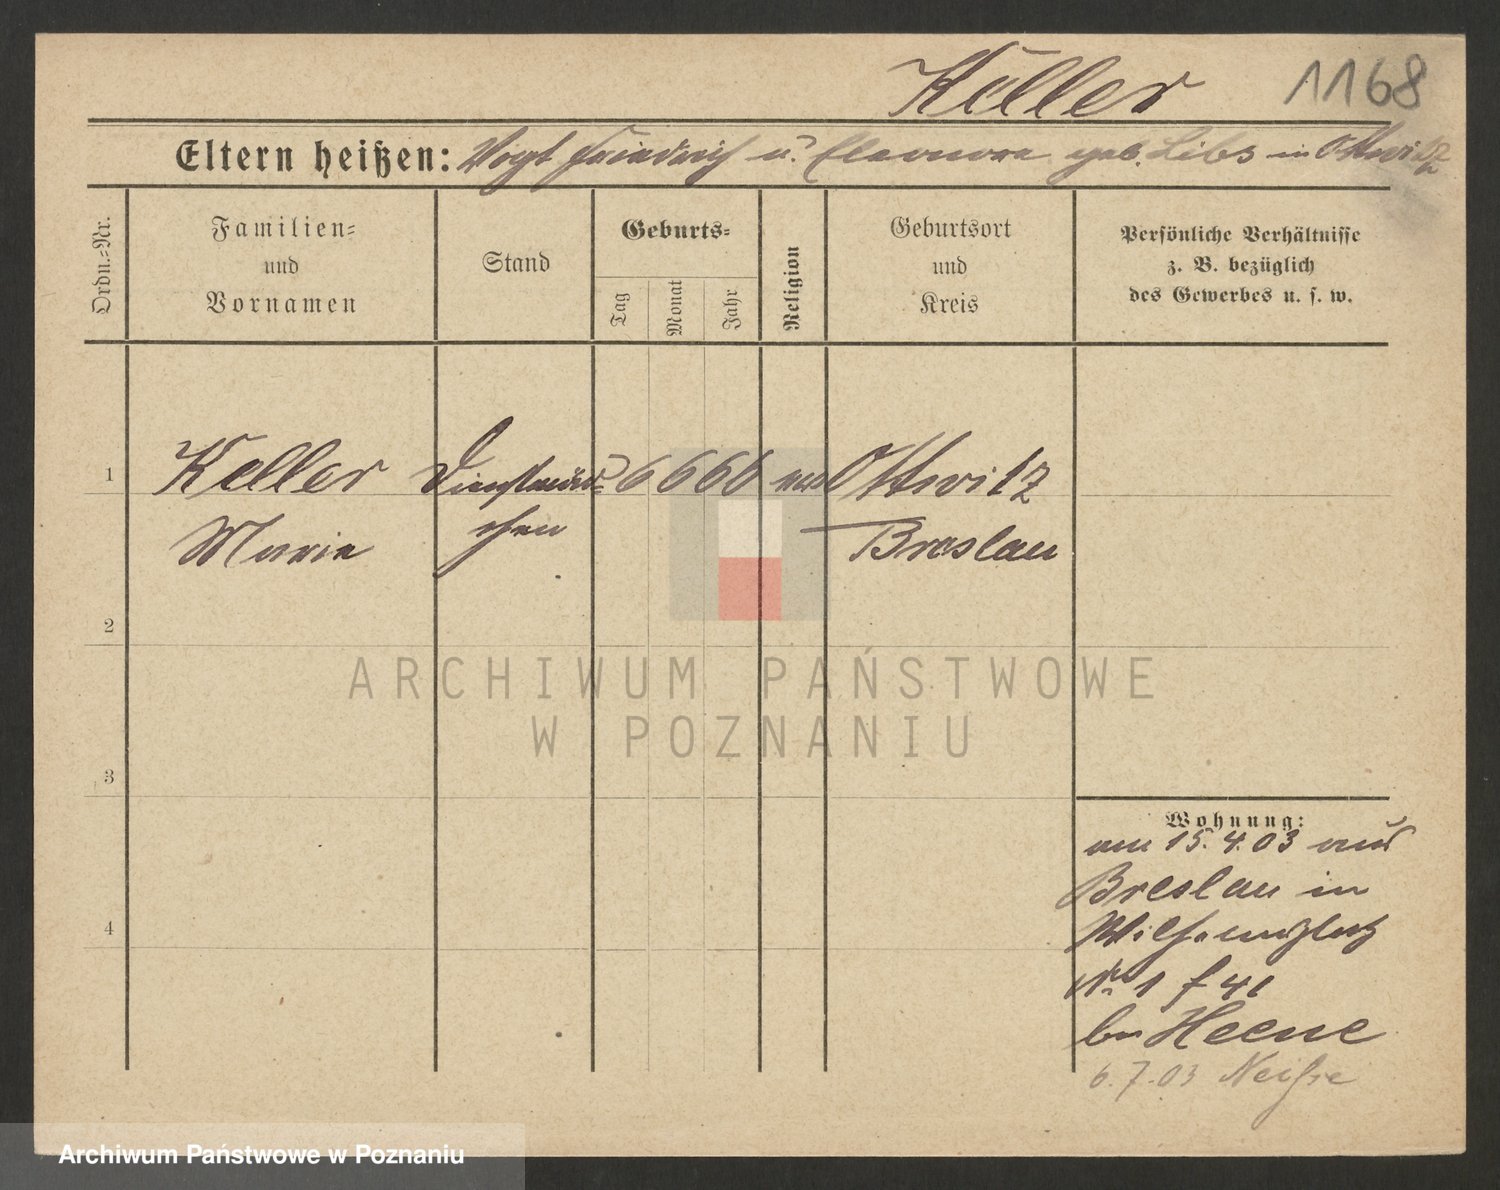 Keller
1168
Eltern heißen: Vogt Friedrich u. Eleonore geb. Libs in Ottwitz
Ordn.=Nr.
Familien=
und
Vornamen
Stand
Geburts=
Tag
Monat
Jahr
Religion
Geburtsort
und
Kreis
Persönliche Verhältnisse
z. B. bezüglich
des Gewerbes u. s. w.
1
Keller
Dienstmäd=
6 6 66
Ottwitz
Marie
chen
Breslau
2
ARCHIWUM PAŃSTWOWE
W POZNANIU
3
4
Wohnung:
am 15.4.03 aus
Breslau in
№ 1
bei Heene
6.7.03 Neiße
Archiwum Państwowe w Poznaniu